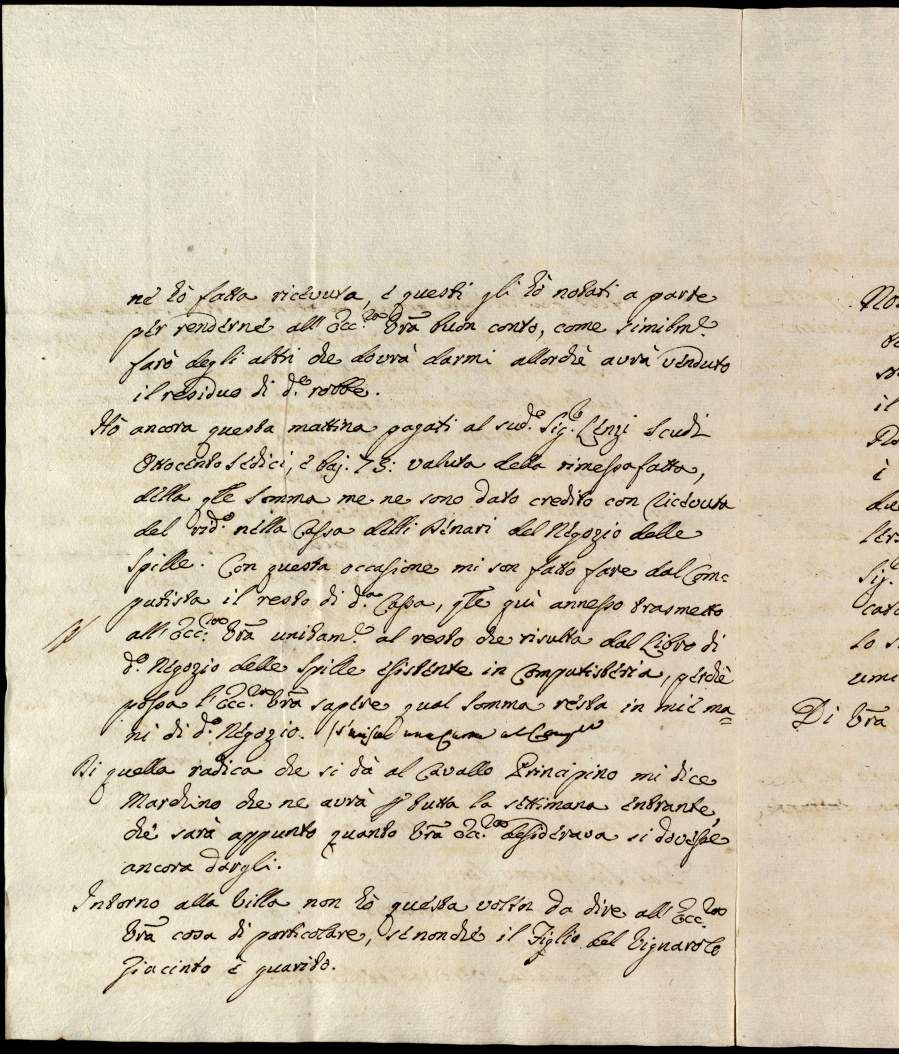 ne hò fatta ricevuta, e questi gli hò notati a parte
per renderne all'Ecc.za Vrã buon conto, come similm.e
farò degli altri che dovrà darmi allorchè avrà venduto
il residuo di d.e robbe.
Hò ancora questa mattina pagati al sud.o Sig.r Lenzi scudi
Ottocento sedici, e baj. 73: valuta della rimessa fatta,
della qle somma me ne sono dato credito con ricevuta
del med.o nella Cassa delli Denari del Negozio delle
Spille. Con questa occasione mi son fatto fare dal Com=
putista il resto di d.a Cassa, qle quì annesso trasmetto
all'Ecc.za Vrã unitam.e al resto che risulta dal Libro di
d.o Negozio delle Spille esistente in Computisteria, perchè
possa l'Ecc.za Vrã sapere qual somma resta in mie ma=
ni di d.o Negozio.
Di quella radica che si dà al Cavallo Principino mi dice
Marchino che ne avrà p tutta la settimana entrante,
che sarà appunto quanto Vrã Ecc.za desiderava si dovesse
ancora dargli.
Intorno alla Villa non hò questa volta da dire all'Ecc.za
Vrã cosa di particolare, se non che il Figlio del Vignarolo
Giacinto è guarito.
il
è
Sig.
lo
Di Vrã